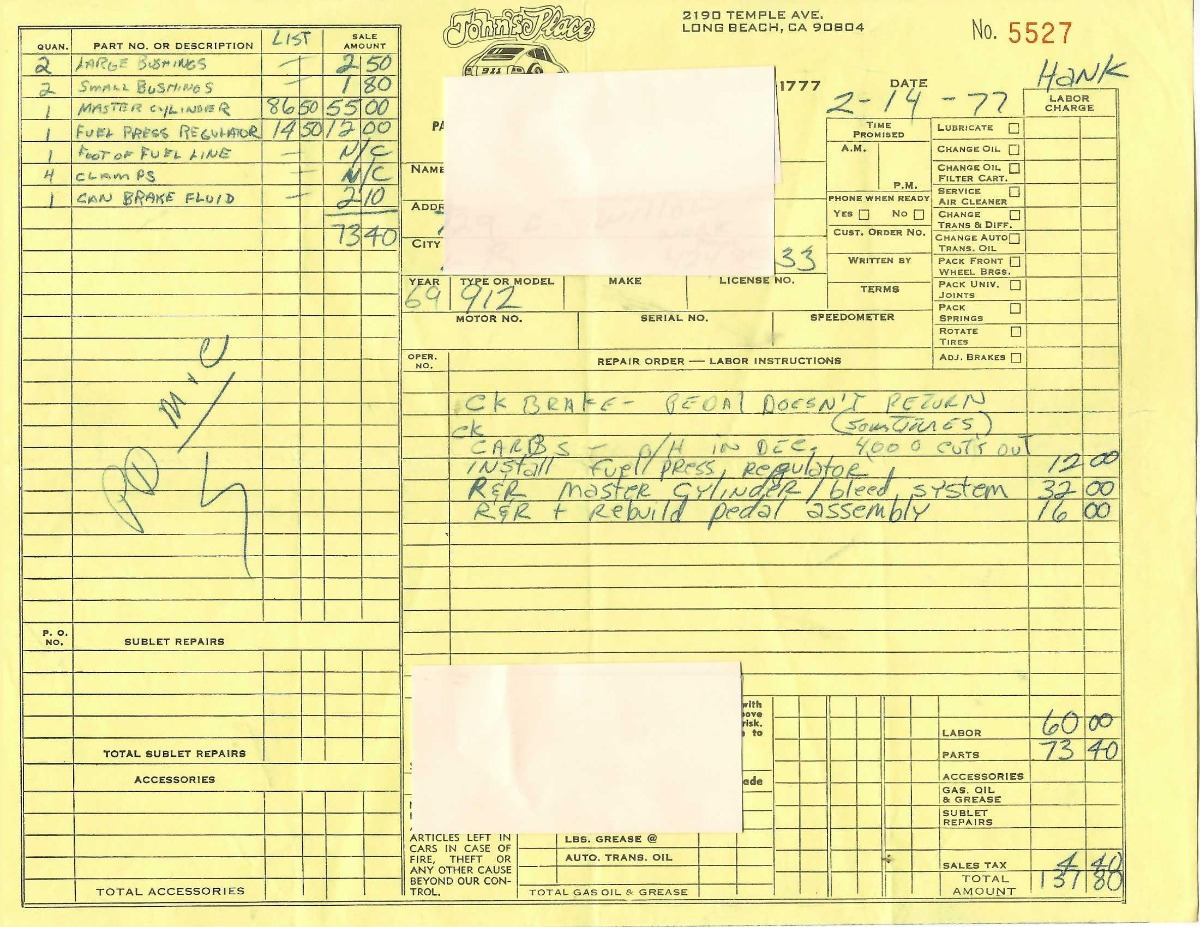 John's Place
911
2190 TEMPLE AVE.
LONG BEACH, CA 90804
No. 5527
1777
DATE
2-14-77
HANK
QUAN. PART NO. OR DESCRIPTION LIST SALE AMOUNT
2 LARGE BUSHINGS — 2 50
2 SMALL BUSHINGS — 1 80
1 MASTER CYLINDER 86 50 55 00
1 FUEL PRESS REGULATOR 14 50 12 00
1 FOOT OF FUEL LINE — N/C
4 CLAMPS — N/C
1 CAN BRAKE FLUID — 2 10
73 40
PD M+C
P. O. NO. SUBLET REPAIRS
TOTAL SUBLET REPAIRS
ACCESSORIES
TOTAL ACCESSORIES
NAME
ADDR
CITY
33
YEAR TYPE OR MODEL MAKE LICENSE NO.
69 912
MOTOR NO. SERIAL NO. SPEEDOMETER
TIME PROMISED
A.M.
P.M.
PHONE WHEN READY
YES NO
CUST. ORDER NO.
WRITTEN BY
TERMS
LABOR CHARGE
LUBRICATE
CHANGE OIL
CHANGE OIL FILTER CART.
SERVICE AIR CLEANER
CHANGE TRANS & DIFF.
CHANGE AUTO TRANS. OIL
PACK FRONT WHEEL BRGS.
PACK UNIV. JOINTS
PACK SPRINGS
ROTATE TIRES
ADJ. BRAKES
OPER. NO. REPAIR ORDER — LABOR INSTRUCTIONS
CK BRAKE - PEDAL DOESN'T RETURN
(SOMETIMES)
CK
CARBS - O/H IN DEC, 4000 CUTS OUT
INSTALL fuel press, regulator 12 00
R&R master cylinder/bleed system 32 00
R&R + Rebuild pedal assembly 16 00
with
ove
risk.
to
ade
ARTICLES LEFT IN
CARS IN CASE OF
FIRE, THEFT OR
ANY OTHER CAUSE
BEYOND OUR CON-
TROL.
LBS. GREASE @
AUTO. TRANS. OIL
TOTAL GAS OIL & GREASE
LABOR 60 00
PARTS 73 40
ACCESSORIES
GAS. OIL & GREASE
SUBLET REPAIRS
SALES TAX 4 40
TOTAL AMOUNT 137 80